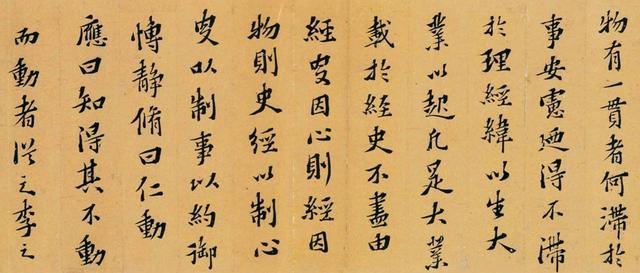 物有一貫者何滯於
事安慮廼得不滯
於理經緯以生大
業以起凡是大業
載於経史不盡由
經史因心則經因
物則史經以制心
史以制事以約御
愽靜脩曰仁動
應曰知得其不動
而動者從之李之